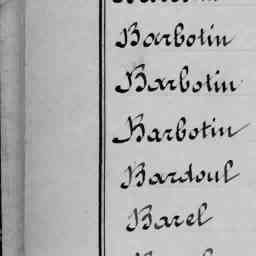 Barbotin
Barbotin
Barbotin
Bardoul
Barel